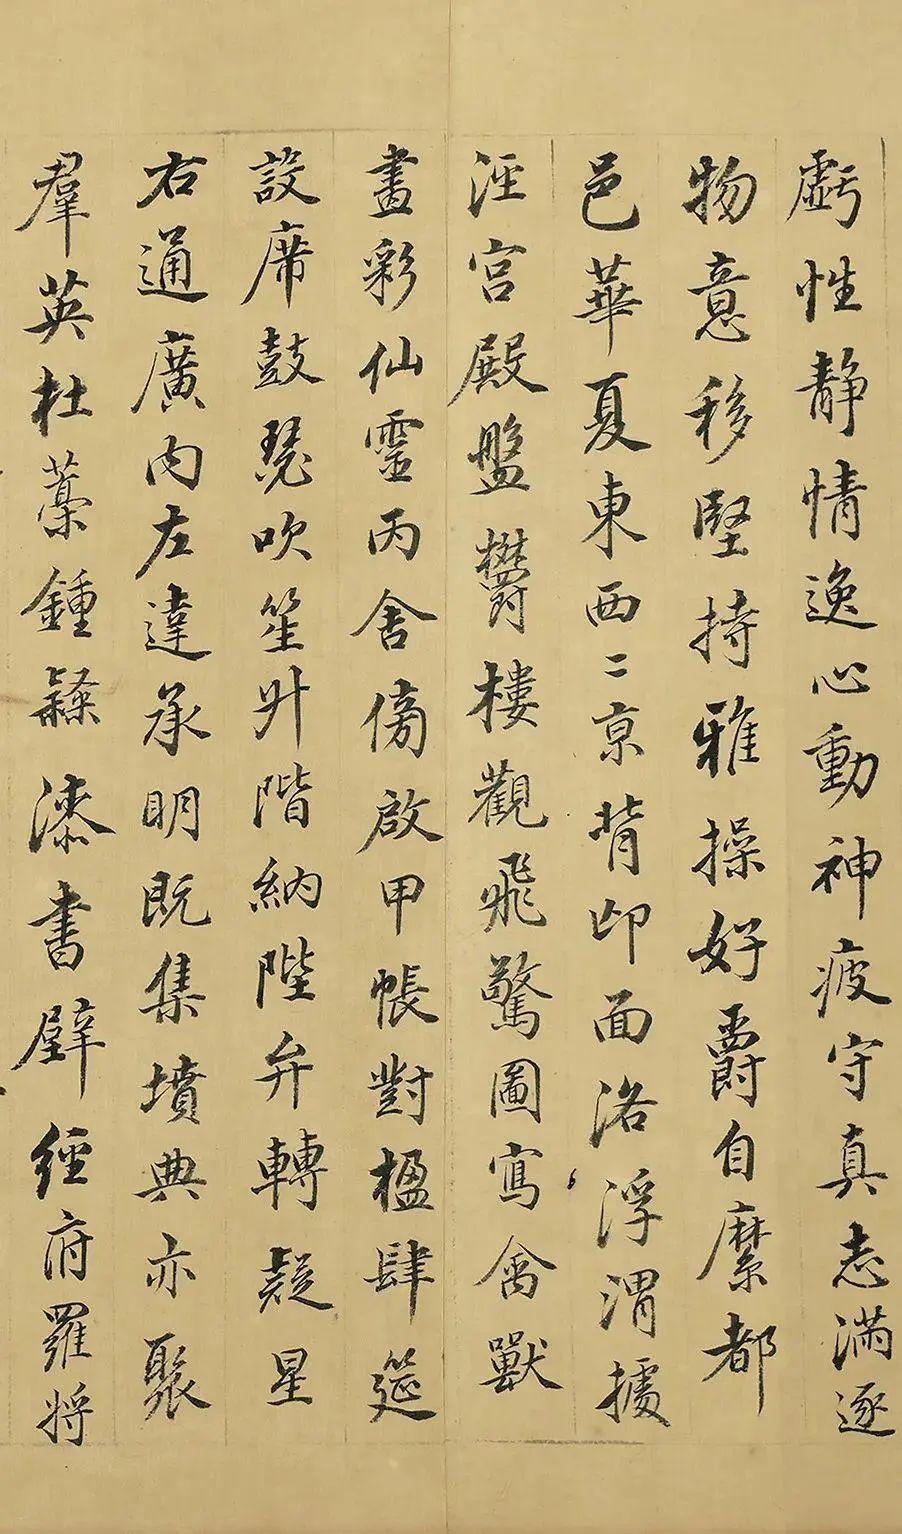 虧性静情逸心動神疲守真志滿逐
物意移堅持雅操好爵自縻都
邑華夏東西二京背邙面洛浮渭據
涇宫殿盤欝樓觀飛驚圖寫禽獸
畫彩仙靈丙舍傍啟甲帳對楹肆筵
設席鼓瑟吹笙升階納陛弁轉疑星
右通廣内左達承明既集墳典亦聚
羣英杜藁鍾隸漆書壁經府羅将